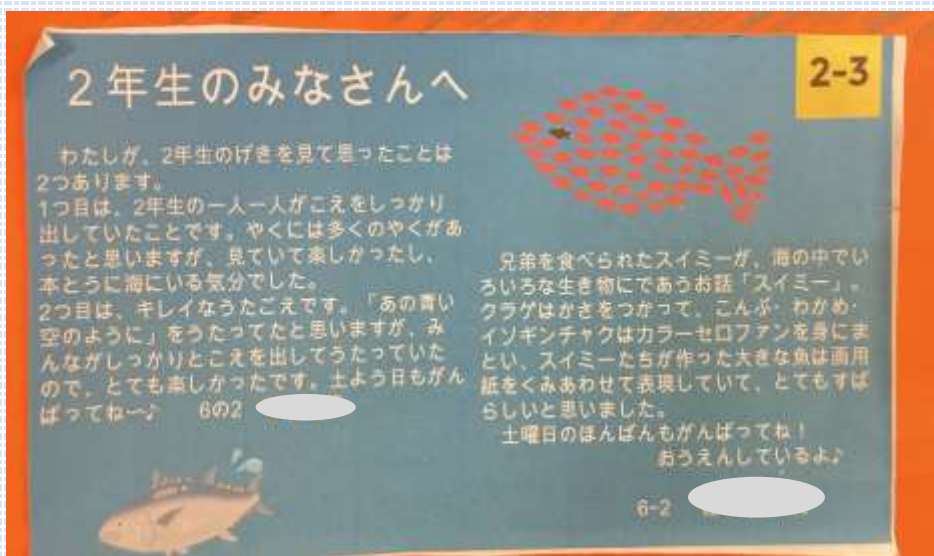 2年生のみなさんへ
2-3
わたしが、2年生のげきを見て思ったことは
2つあります。
1つ目は、2年生の一人一人がこえをしっかり
出していたことです。やくには多くのやくがあ
ったと思いますが、見ていて楽しかったし、
本とうに海にいる気分でした。
2つ目は、キレイなうたごえです。「あの青い
空のように」をうたってたと思いますが、み
んながしっかりとこえを出してうたっていた
ので、とても楽しかったです。土よう日もがん
ばってね〜♪ 6の2
兄弟を食べられたスイミーが、海の中でい
ろいろな生き物にであうお話「スイミー」。
クラゲはかさをつかって、こんぶ・わかめ・
イソギンチャクはカラーセロファンを身にま
とい、スイミーたちが作った大きな魚は画用
紙をくみあわせて表現していて、とてもすば
らしいと思いました。
土曜日のほんばんもがんばってね！
おうえんしているよ♪
6-2